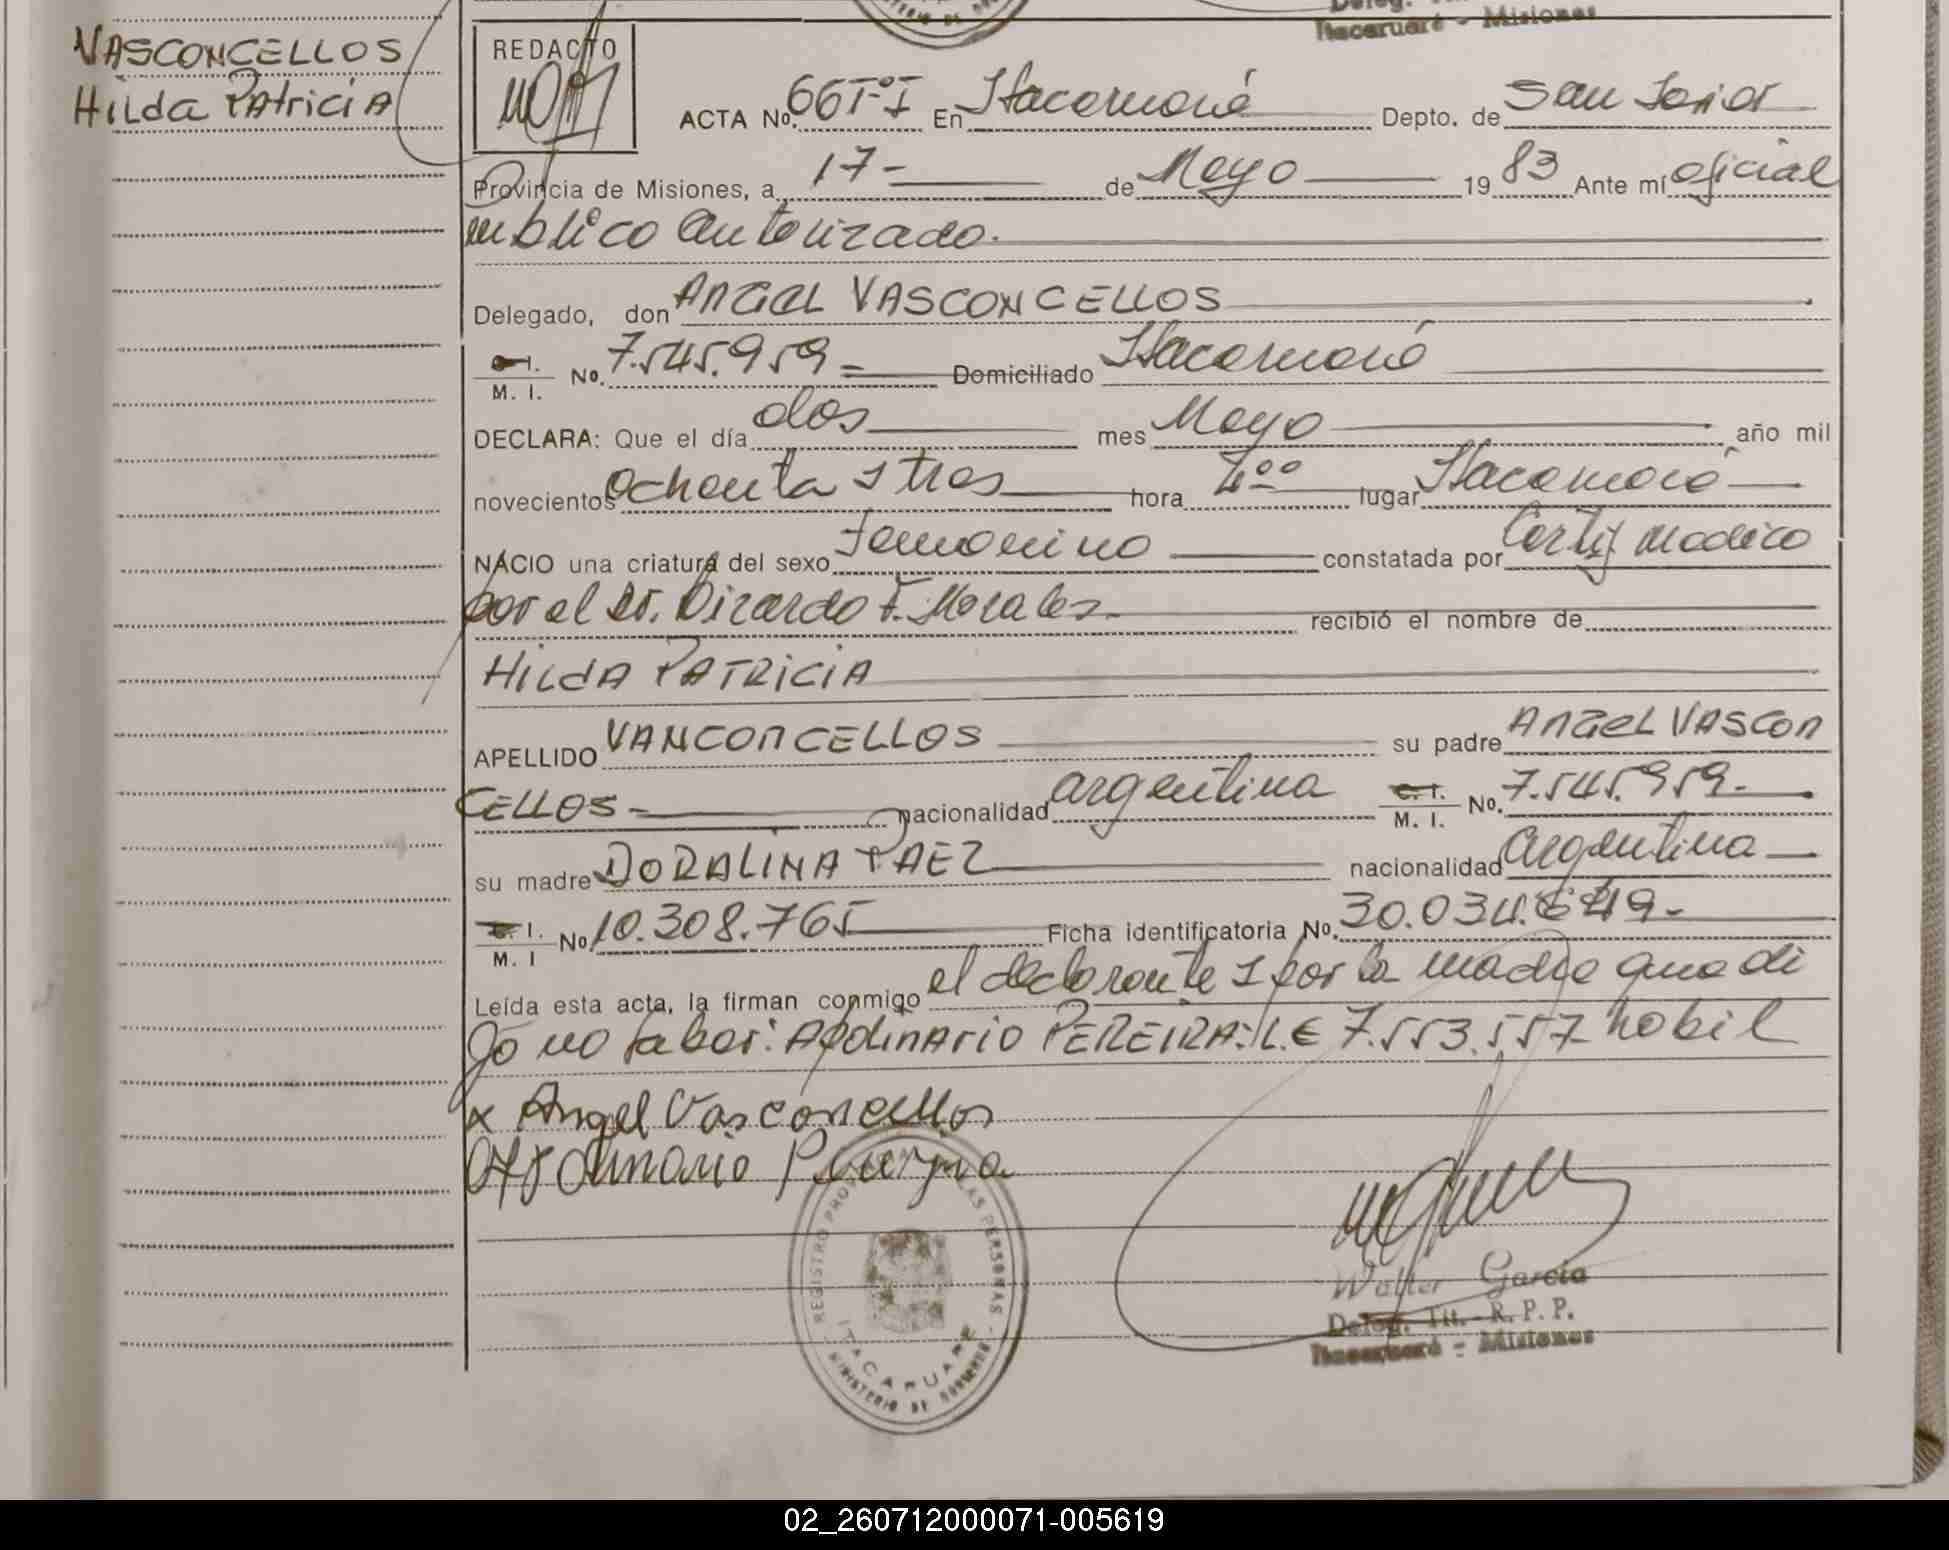 Itacaruaré - Misiones
VASCONCELLOS
Hilda PAtriciA
REDACTO
ACTA No. 66 T-I En Itacaruaré Depto. de San Javier
Provincia de Misiones, a 17- de Mayo 19 83 Ante mí oficial
publico autorizado.
Delegado, don ANGEL VASCONCELLOS
C.I. M. I. No. 7.545.959 = Domiciliado Itacaruaré
DECLARA: Que el día dos mes Mayo año mil
novecientos ochenta y tres hora 4°° lugar Itacaruaré
NACIO una criatura del sexo femenino constatada por Certif medico
por el Dr. F. Morales recibió el nombre de
HILdA PATRICIA
APELLIDO VANCONCELLOS su padre ANGEL VASCON
CELLOS- nacionalidad argentina C.I. M. I. No. 7.545.959.
su madre DORALINA PAEZ nacionalidad argentina
C.I. M. I No. 10.308.765 Ficha identificatoria No. 30.034.649-
Leída esta acta, la firman conmigo el declarante y por la madre que di
jo no saber: ApolinArio PEREIRA: L.E 7.553.557 habil
x Angel Vasconcellos
REGISTRO PROVINCIAL DE LAS PERSONAS
ITACARUARE
MINISTERIO DE GOBIERNO
Walter García
Deleg. Tit. R. P. P.
Itacaruaré - Misiones
02_260712000071-005619